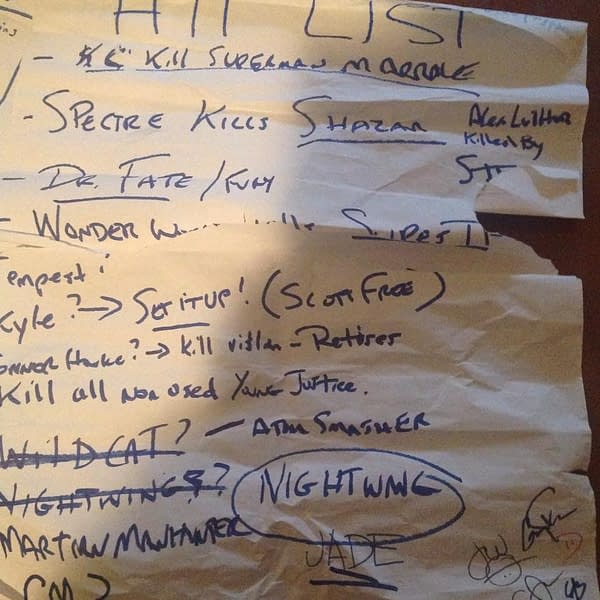 HIT LIST
- Kill SUPERMAN
- SPECTRE KILLS SHAZAM
Alex Luthor
Killed By
- DR. FATE / FURY
- WONDER
Tempest?
Kyle? → SET IT UP! (SCOTT FREE)
Conner Hawke? → Kill villan - Retires
Kill all non used Young Justice.
WILDCAT? - ATOM SMASHER
NIGHTWING? NIGHTWING
MARTIAN MANHUNTER
JADE